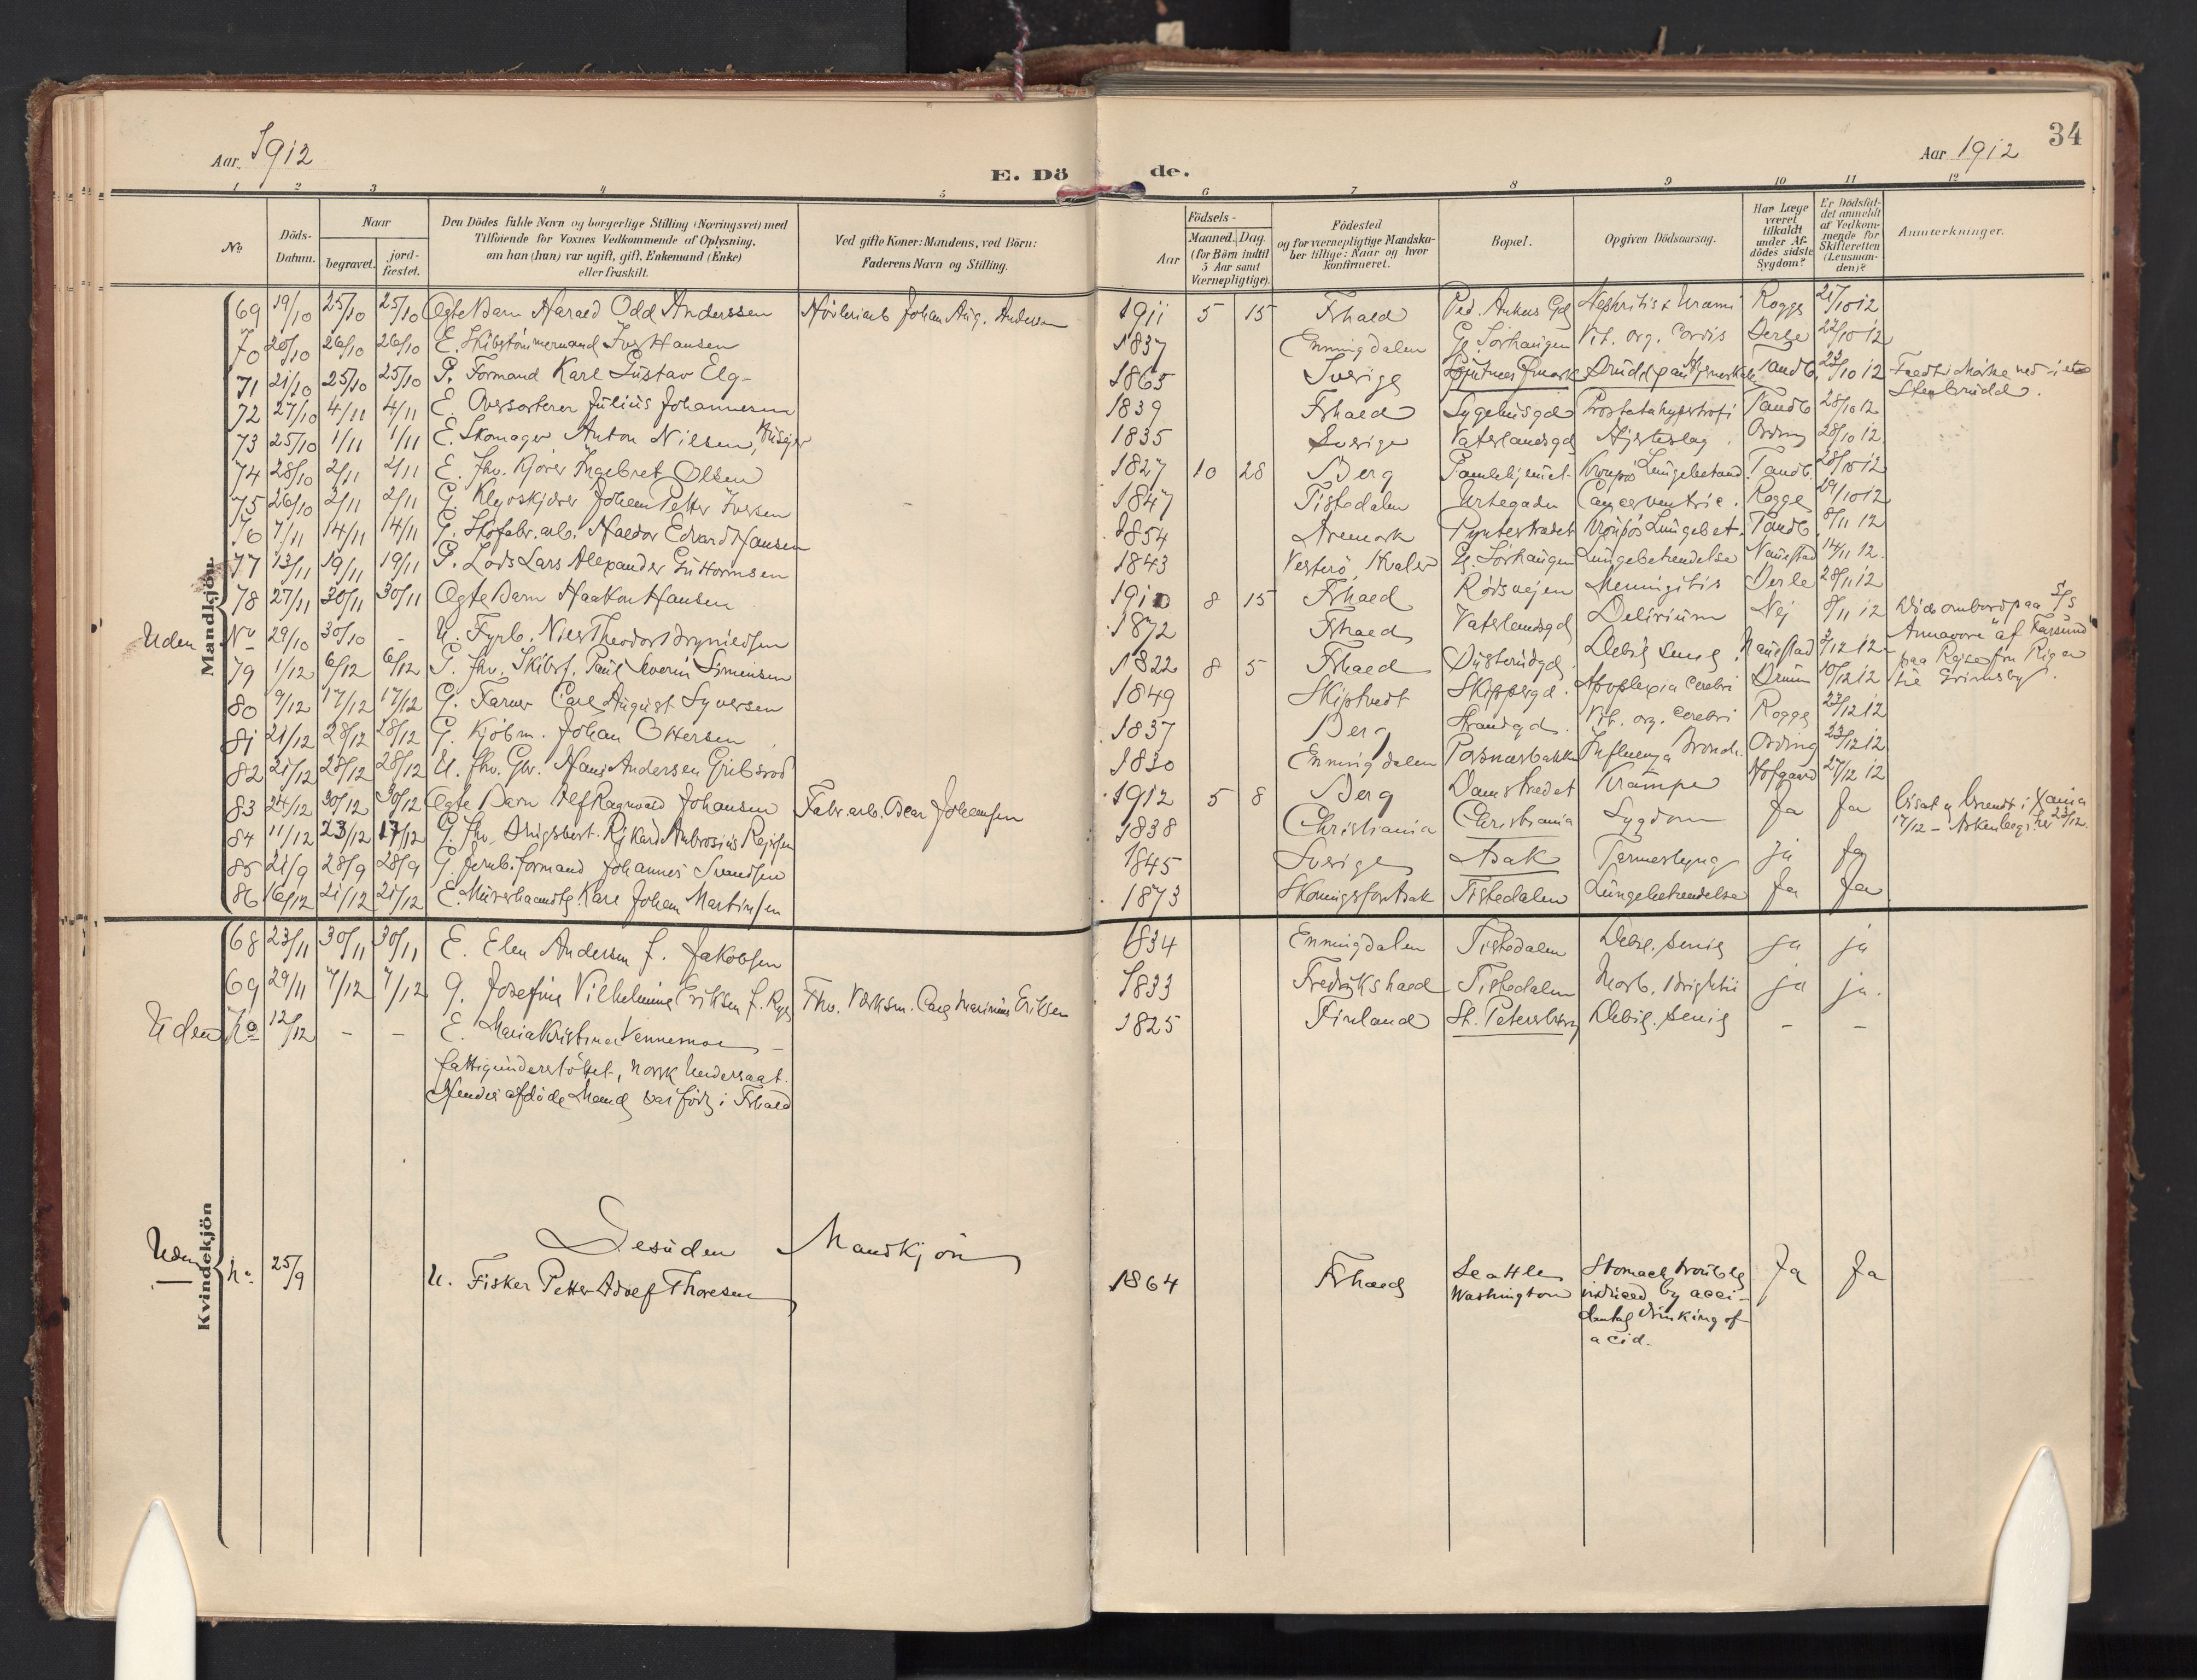 34
Aar 1912
Aar 1912
E. Döde.
1 2 3 4 5 6 7 8 9 10 11 12
No
Döds-Datum.
Naar
begravet.
jord-fæstet.
Den Dödes fulde Navn og borgerlige Stilling (Næringsvei) med
Tilföiende for Voxnes Vedkommende af Oplysning,
om han (hun) var ugift, gift, Enkemand (Enke)
eller fraskilt.
Ved gifte Koner: Mandens, ved Börn:
Faderens Navn og Stilling.
Födsels-
Aar
Maaned. Dag.
(for Börn indtil
5 Aar samt
Værnepligtige).
Födested
og for værnepligtige Mandska-
ber tillige: Naar og hvor
konfirmeret.
Bopæl.
Opgiven Dödsaarsag.
Har Læge
været
tilkaldt
under Af-
dödes sidste
Sygdom?
Er Dödsfal-
det anmeldt
af Vedkom-
mende for
Skifteretten
(Lensman-
den)?
Anmærkninger.
Mandkjön.
69 19/10 25/10 25/10 Ægte Barn Harald Odd Anderssen Høvleriarb Johan Aug. Andersen 1911 5 15 Frhald Ped. Ankers Gd Nephritis & Urami Rogge 21/10 12
70 20/10 26/10 26/10 E. Skibstømmermand Iver Hansen 1837 Enningdalen Gl. Sørhaugen Vit. org. Cordis Derle 22/10 12
71 21/10 25/10 25/10 G. Formand Karl Gustav Elg- 1865 Sverige Brud paa Hjerneskal Tandb. 23/10 12 Stenbrudd.
72 27/10 4/11 4/11 E. Oversorterer Julius Johannesen 1839 Frhald Sygehusgd Prostatahypertrofi Tandb 28/10 12
73 25/10 1/11 1/11 E. Skomager Anton Nilsen, Huseier 1835 Sverige Vaterlandsgd Hjerteslag. Ording 28/10 12
74 28/10 2/11 2/11 E. fhv. Kjører Ingebret Olsen 1827 10 28 Berg Gamlehjemmet Krupøs Lungebetænd. Tandb. 28/10 12
75 26/10 2/11 2/11 G. Klevskjærer Johan Petter Iversen 1847 Tistedalen Urtegaden Cancer ventric. Rogge 29/10 12
76 7/11 14/11 14/11 G. Skofabr. arb. Haldor Edvard Hansen 1854 Aremark Pynterstrædet Krupøs Lungebet. Tandb. 8/11 12
77 13/11 19/11 19/11 G. Lods Lars Alexander Guttormsen 1843 Vesterö, Hvaler Gl. Sörhaugen Lungebetændelse Naustad 14/11 12.
78 27/11 30/11 30/11 Ægte Barn Haakon Hansen 1910 8 15 Frhald Rødsveien Meningitis Derle 28/11 12
Uden No 29/10 30/10 - U. Fyrb. Niels Theodor Brynildsen 1872 Frhald Vaterlandsgd Delirium Nej 8/11 12 Døde ombord paa S/S
"Annavore" af Farsund
paa Rejse fra Riga
til Grimsby.
79 1/12 6/12 6/12 G. fhv. Skibsf. Paul Severin Simensen 1822 8 5 Frhald Busterudgd. Debil. senil. Naustad 3/12 12
80 9/12 17/12 17/12 G. Farver Carl August Syversen 1849 Skiptvedt Skippergd. Apoplexia Cerebri Drum 10/12 12
81 21/12 28/12 28/12 G. Kjøbm. Johan Ottersen 1837 Berg Strandgd. Vit. org. Cerebri Rogge 23/12 12
82 21/12 28/12 28/12 U. fhv. Gbr. Hans Andersen Gribsrød 1830 Enningdalen Influenza Bronch. Ording 23/12 12
83 24/12 30/12 30/12 Ægte Barn Alf Ragnvald Johansen Fabr.arb. Oscar Johansen 1912 5 8 Berg Damstrædet Krampe Hofgaard 27/12 12
84 11/12 23/12 17/12 G. fhv. Rikard Ambrosius Rejersen 1838 Christiania Christiania Sygdom Ja Ja Bisat og brændt i Xania
17/12 - Askenlegs. her 23/12.
85 21/9 28/9 28/9 G. Jernb. formand Johannes Svendsen 1845 Sverige Asak Tarmeslyng ja ja
86 16/12 21/12 21/12 E. Murerhaandtl. Karl Johan Martinsen 1873 Skonningsfos Asak Tistedalen Lungebetændelse Ja Ja
Kvindekjön
68 23/11 30/11 30/11 E. Elen Andersen f. Jakobsen 1834 Enningdalen Tistedalen Debil. senil ja ja
69 29/11 7/12 7/12 G. Josefine Vilhelmine Eriksen f. Ryg Fhv. Værksm. Carl Marinius Eriksen 1833 Fredrikshald Tistedalen Morb. Brightii ja ja.
Uden No 12/12 - - E. Maria Kristina Vennemoe - 1825 Finland St. Petersburg Debil. senil - -
fattigunderstøttet, norsk Undersaat.
Hendes afdöde Mand var født i Frhald
Desuden Mandkjön
Uden No 25/9 U. Fisker Petter Adolf Thoresen 1864 Frhald Seattle
Washington Stomach trouble
induced by acci-
dental drinking of
acid. Ja Ja